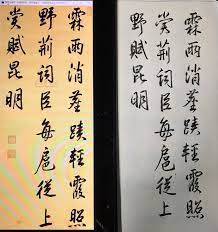 霖雨消塵蹟輕霞照
賞荆詞臣每扈從上
野賦昆明
霖雨消塵蹟輕霞照
野荆詞臣每扈從上
賞賦昆明